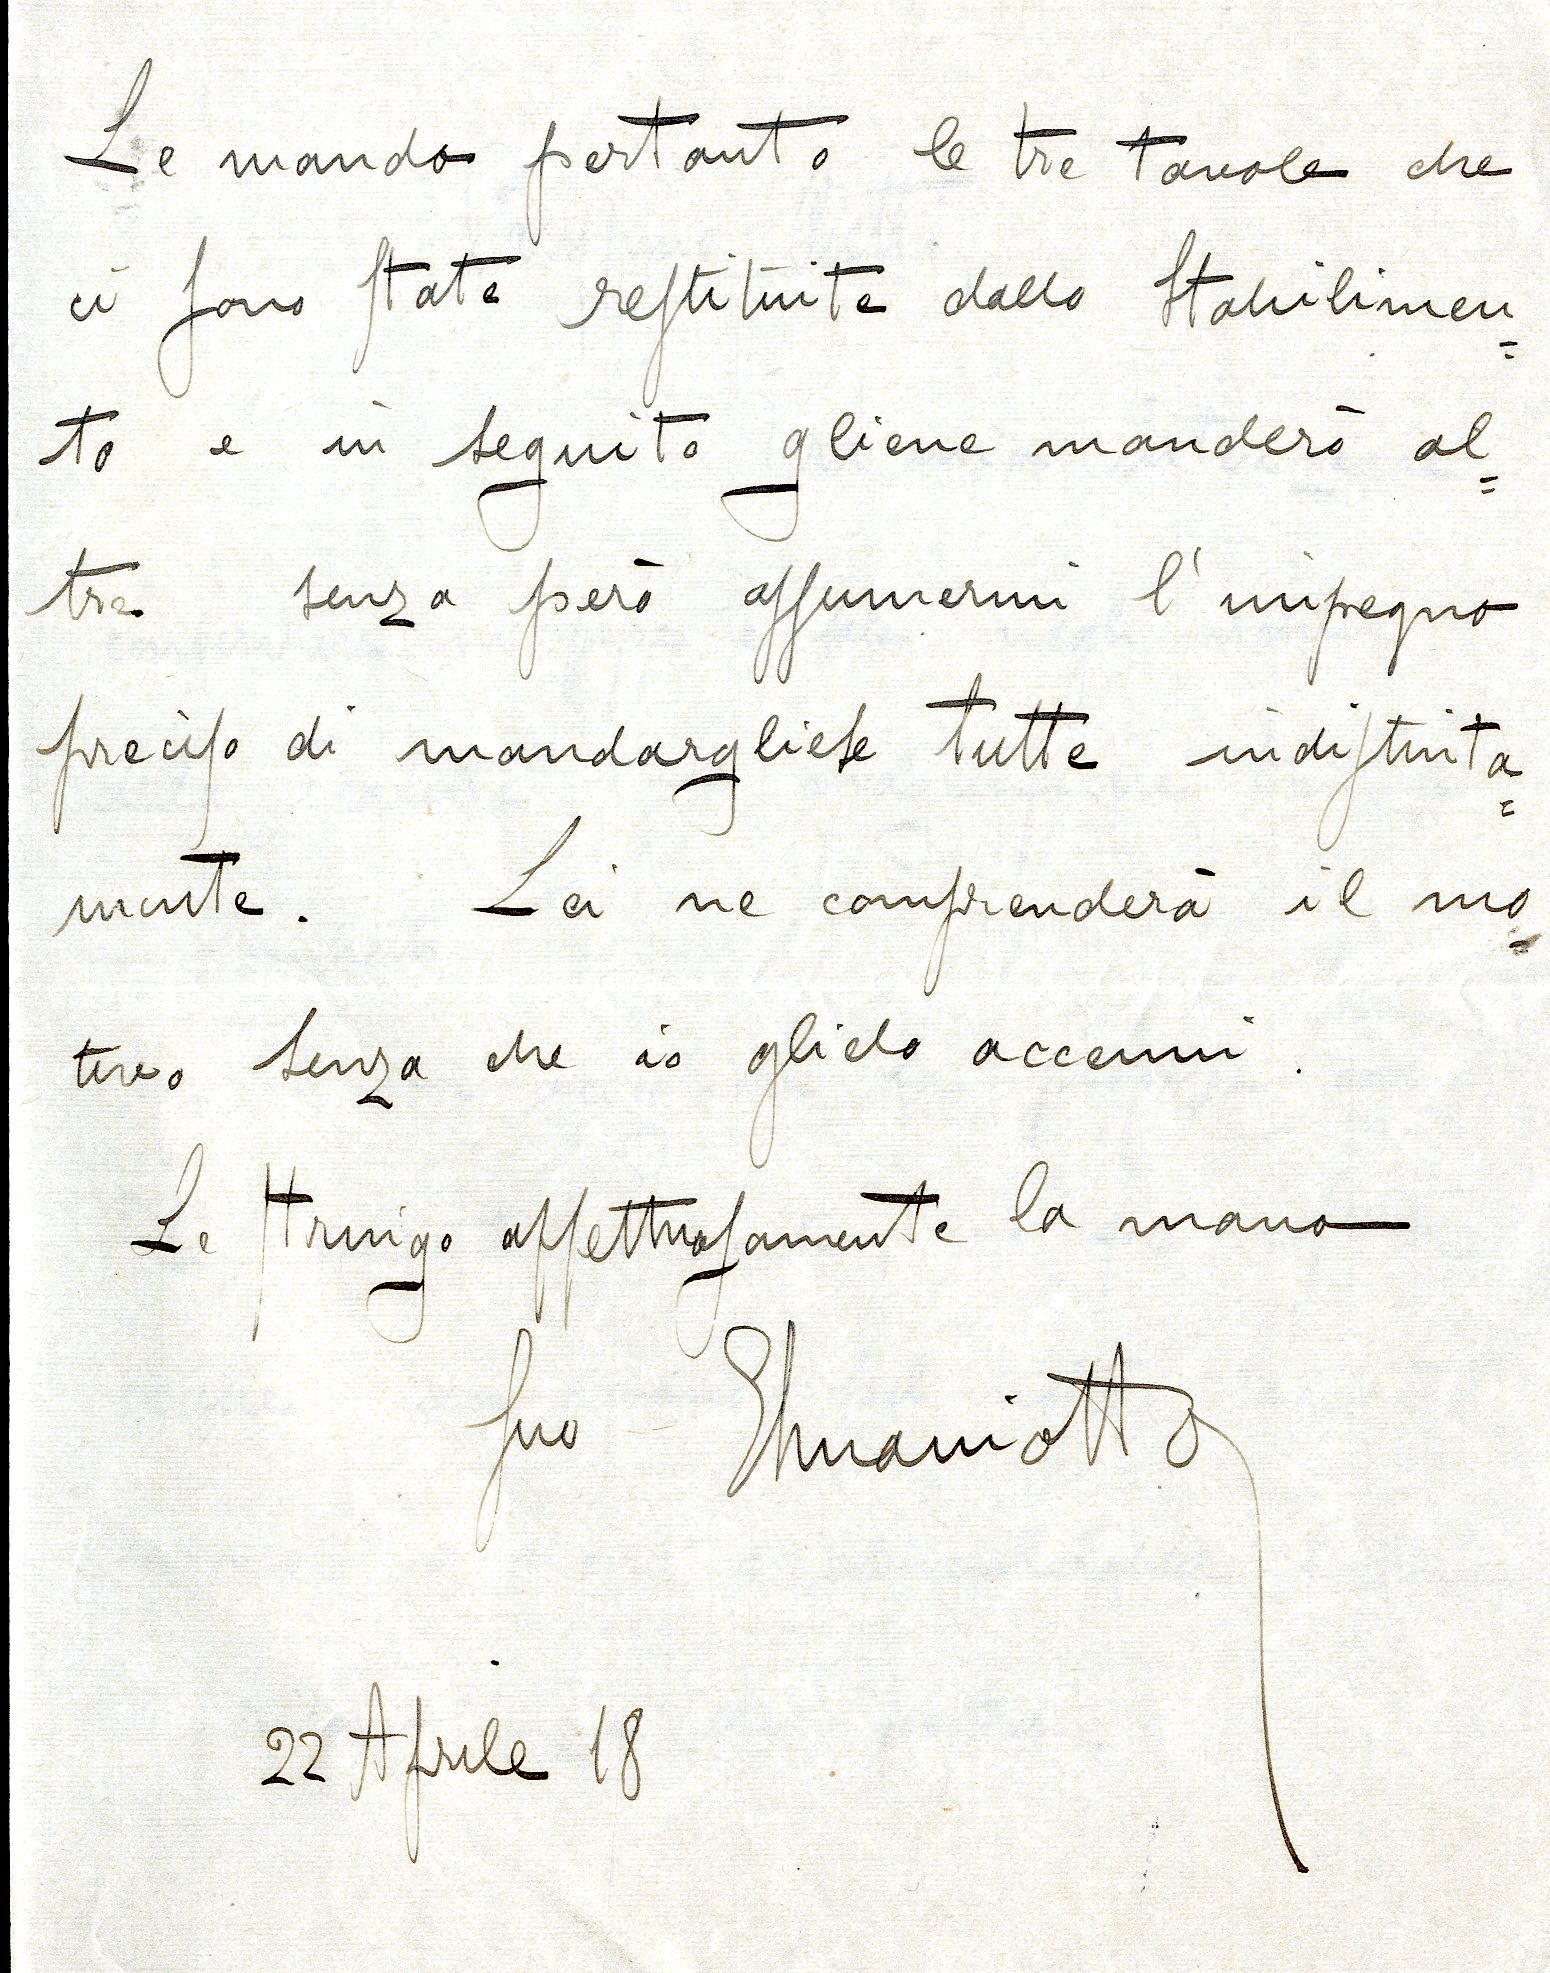 Le mando pertanto le tre tavole che
ci sono state restituite dallo Stabilimen=
to e in seguito gliene manderò al=
tre senza però assumermi l'impegno
preciso di mandargliele tutte indistinta=
mente. Lei ne comprenderà il mo=
tivo senza che io glielo accenni.
Le stringo affettuosamente la mano
Suo
22 Aprile 18